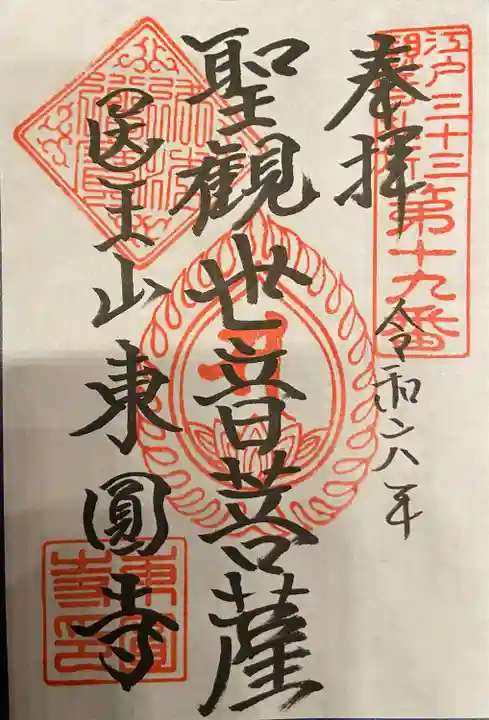 江戸三十三
観音札所
第十九番
奉拝
令和六年
聖観世音菩薩
医王山東圓寺